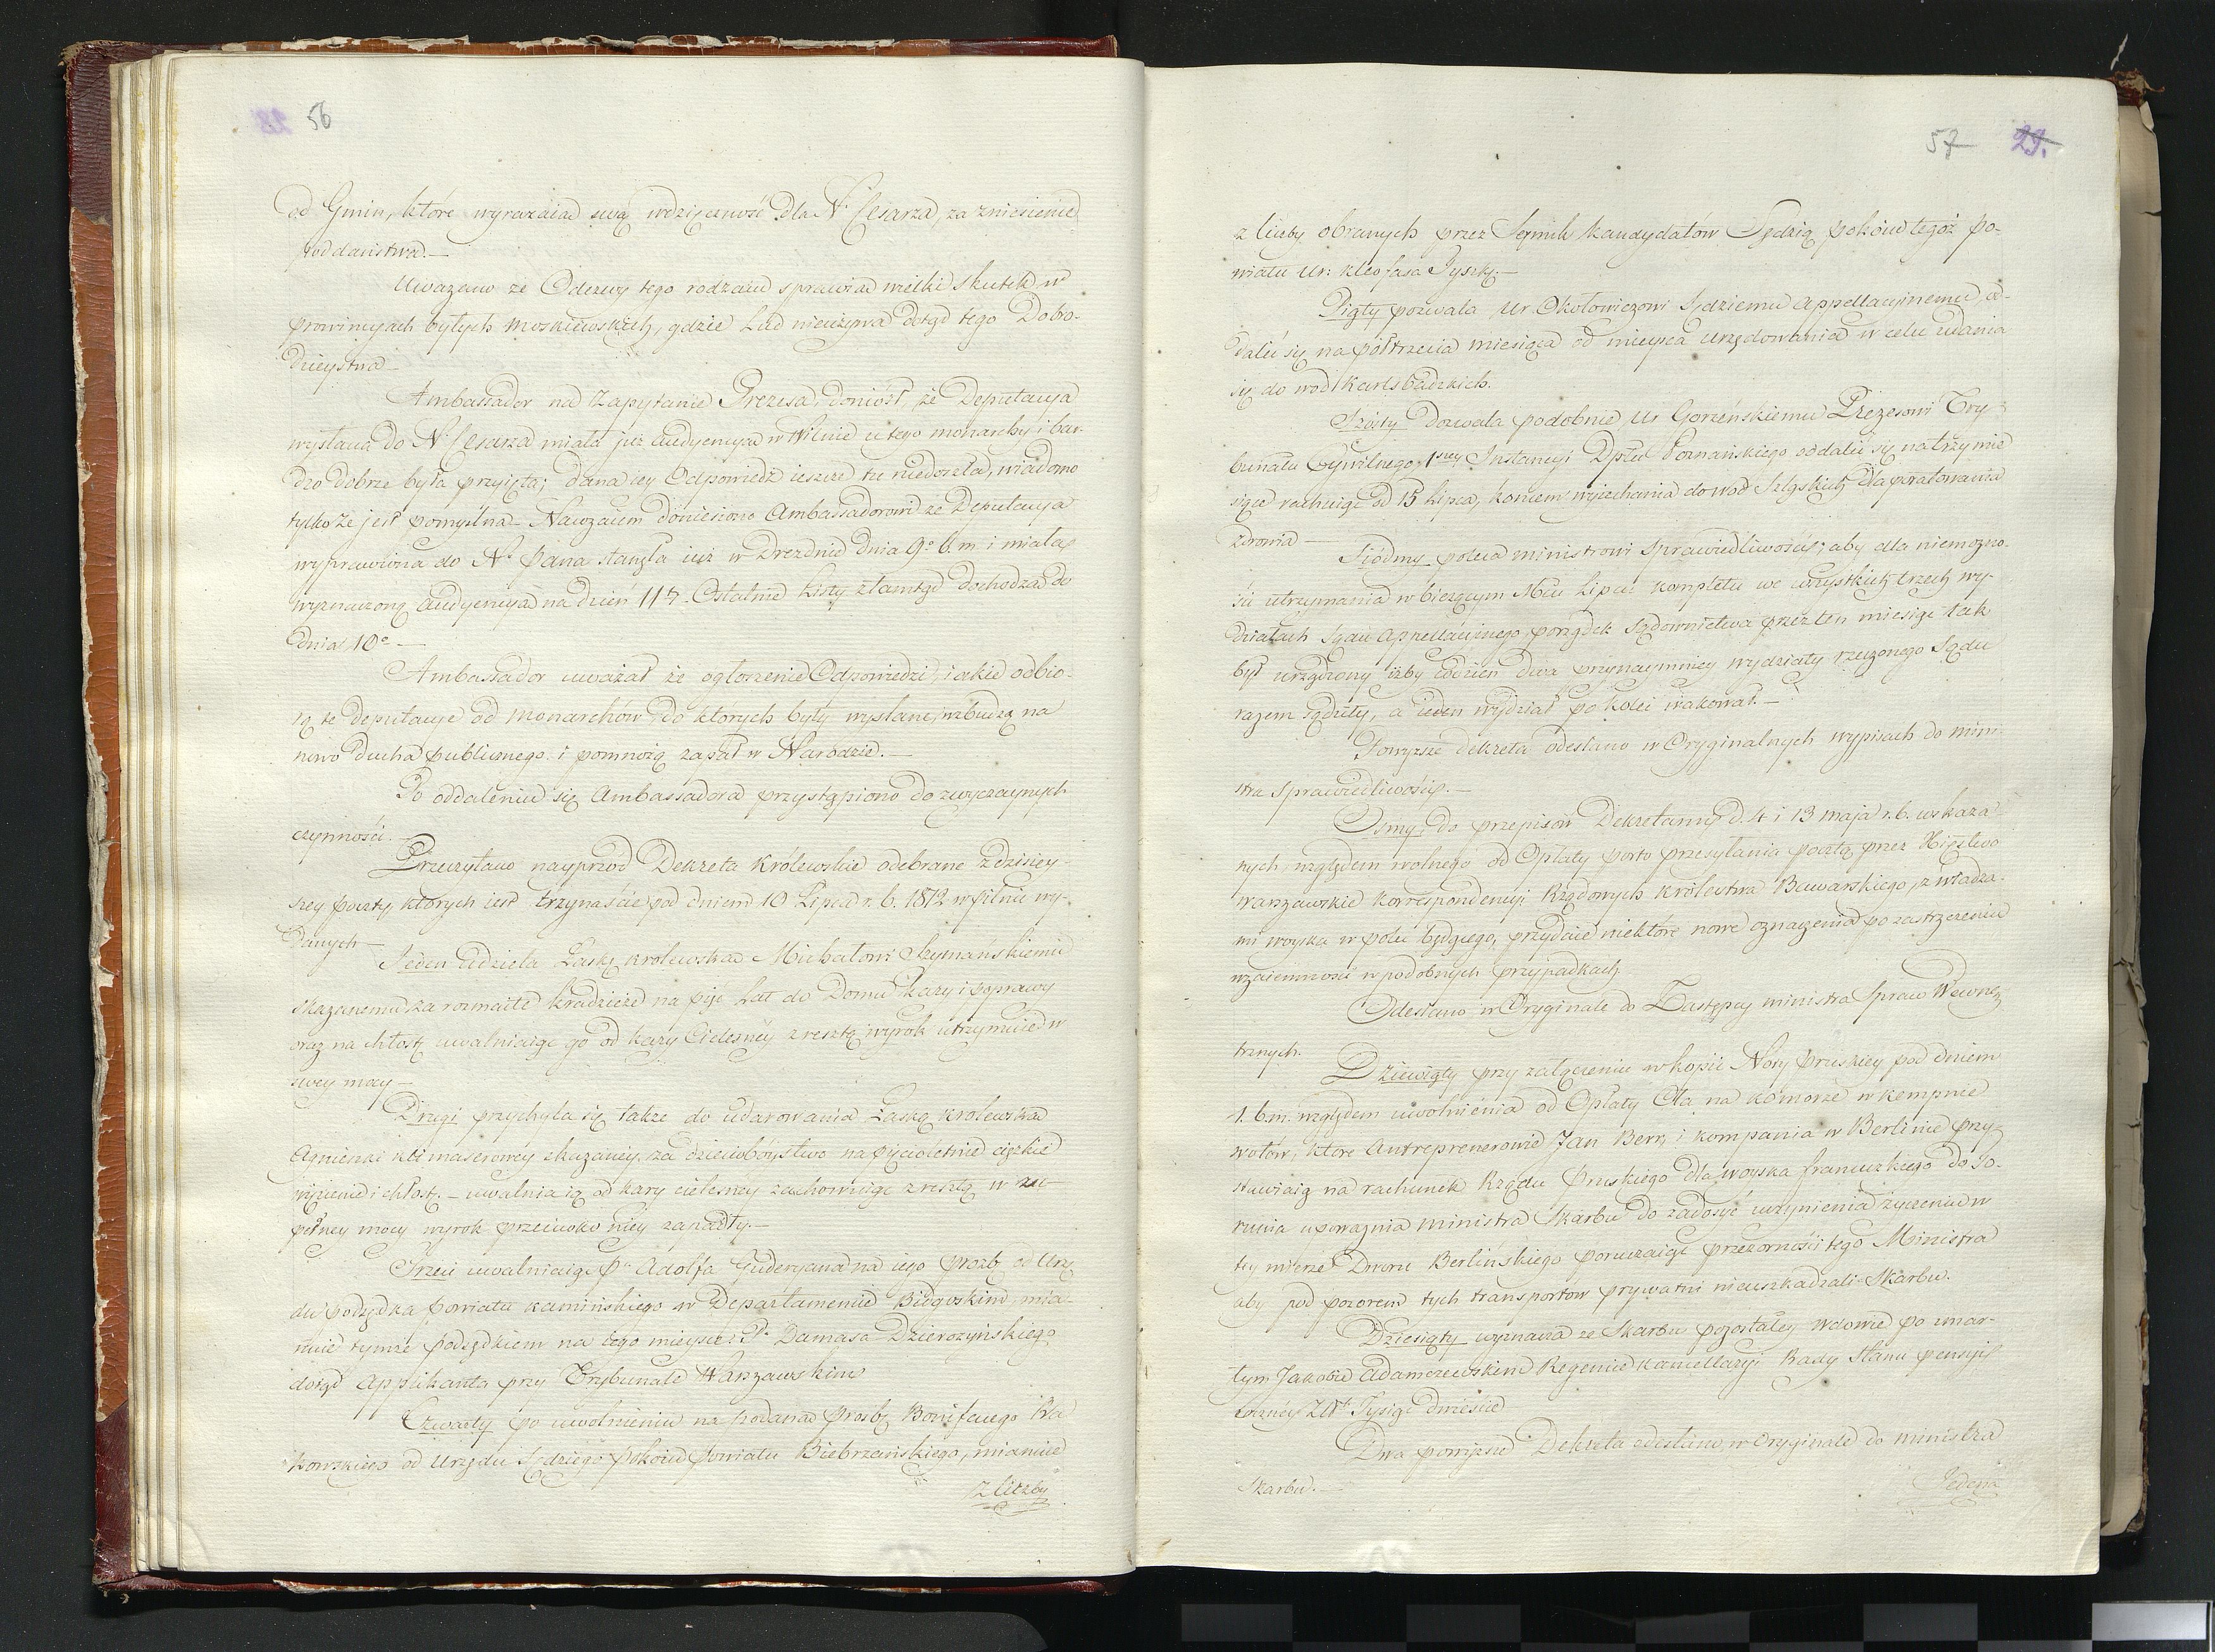 56
od Gmin, które wyrażaią swą wdzięczność dla N. Cesarza, za zniesienie
poddaństwa.—
Uważano że Odezwy tego rodzaiu sprawią wielki skutek w
prowincyach byłych Moskiewskich, gdzie Lud nieużywa dotąd tego Dobro-
dzieystwa—
Ambassador na zapytanie Prezesa, doniósł, że Deputacya
wysłana do N. Cesarza miała już audyencyą w Wilnie u tego monarchy i bar-
dzo dobrze była przyięta; dana iey Odpowiedź ieszcze tu niedoszła, wiadomo
tylko że jest pomyślna— Nawzaiem doniesiono Ambassadorowi że Deputacya
wyprawiona do N. Pana stanęła iuż w Dreznie dnia 9o b. m. i miała
wyznaczoną audyencyą na dzień 11ty. Ostatnie Listy ztamtąd dochodzą do
dnia 10o—
Ambassador uważał że ogłoszenie Odpowiedzi, iakie odbio-
rą te deputacye od Monarchów, do których były wysłane, wzbudzą na
nowo ducha publicznego i pomnożą zapał w Narodzie.—
Po oddaleniu się Ambassadora przystąpiono do zwyczaynych
czynności.—
Przeczytano nayprzód Dekreta Królewskie odebrane z dzisiey-
szey poczty, których iest trzynaście pod dniem 10 Lipca r. b. 1812 w Pilnie wy-
danych—
Jeden udziela Łaskę królewską Michałowi Szymańskiemu
skazanemu za rozmaite kradzieże na pięć Lat do Domu kary i poprawy
oraz na chłostę uwalniaiąc go od kary Cielesney zresztą wyrok utrzymuie w
swey mocy—
Drugi przychyla się także do udarowania Łaską królewską
Agnieszki Klimaszewowey skazaney za dzieciobóystwo na pięcioletnie ciężkie
więzienie i chłostę.— uwalnia ią od kary cielesney zachowuiąc zresztą w zu-
pełney mocy wyrok przeciwko niey zapadły.—
Trzeci uwalniaiąc Pa Adolfa Guderyana na iego prozbę od Urzę
du podsędka powiatu kamińskiego w Departamencie Bidgoskim, mia-
nuie tymże podsędkiem na iego mieysce Pa Damasa Dzierożyńskiego
dotąd Applikanta przy Trybunale Warszawskim
Czwarty po uwolnieniu na podaną prozbę Bonifacego Ra
kowskiego od Urzędu Sędziego pokoiu powiatu Biebrzańskiego, mianuie
z liczby
57 29.
z liczby obranych przez Seymik kandydatów Sędzią pokoiu tegoż po-
wiatu Ur: Kleofasa Tyszkę.—
Piąty pozwala Ur Okołowiczowi Sędziemu Appellacyinemu, od-
dalić się na półtrzecia miesiąca od mieysca urzędowania w celu udania
się do wód Karlsbadzkich.
Szósty Dozwala podobnie Ur Gorzeńskiemu Prezesowi Try-
bunału Cywilnego 1szey Instancyi Dpttu Poznańskiego oddalić się na trzy mie
siące rachuiąc od 15 Lipca, koncem wyiechania do wód Szląskich dla poratowania
zdrowia—
Siódmy poleca ministrowi Sprawiedliwości; aby dla niemożno-
ści utrzymania w bieżącym Mcu Lipcu kompletu we wszystkich trzech wy-
działach Sądu Appellacyinego, porządek Sądownictwa przez ten miesiąc tak
był urządzony iżby codzień dwa przynaymniey wydziały rzeczonego Sądu
razem sądziły, a ieden wydział po kolei wakował.—
Powyższe dekreta odesłano w Oryginalnych wypisach do mini-
stra Sprawiedliwości.—
Osmy, do przepisów Dekretami d. 4 i 13 maja r. b. wskaza-
nych, względem wolnego od Opłaty porto przesyłania pocztą przez Xięstwo
warszawskie korrespondencyi Rządowych królestwa Bawarskiego, z władza-
mi woyska w polu będącego, przydaie niektóre nowe oznaczenia po zastrzeżeniu
wzaiemności w podobnych przypadkach.
Odesłano w Oryginale do Zastępcy ministra Spraw Wewnę
trznych.
Dziewiąty przy załączeniu w kopii Noty Pruskiey pod dniem
1. b. m. względem uwolnienia od Opłaty Cła na komorze w Kempnie
wołów, które Antreprenerowie Jan Berr, i kompania w Berlinie przy
stawiaią na rachunek Rządu Pruskiego dla woyska francuzkiego do To-
runia upoważnia ministra Skarbu do zadosyć uczynienia życzeniu w
tey mierze Dworu Berlińskiego poruczaiąc przezorności tego Ministra
aby pod pozorem tych transportów prywatni nieuszkadzali Skarbu.
Dziesiąty wyznacza ze Skarbu pozostałey wdowie po zmar-
łym Jakobie Adamczewskim Regencie Kancellaryi Rady Stanu pensyi
roczney Złt Tysiąc dwieście
Dwa powyższe Dekreta odesłano w Oryginale do ministra
Skarbu.—
Jedena